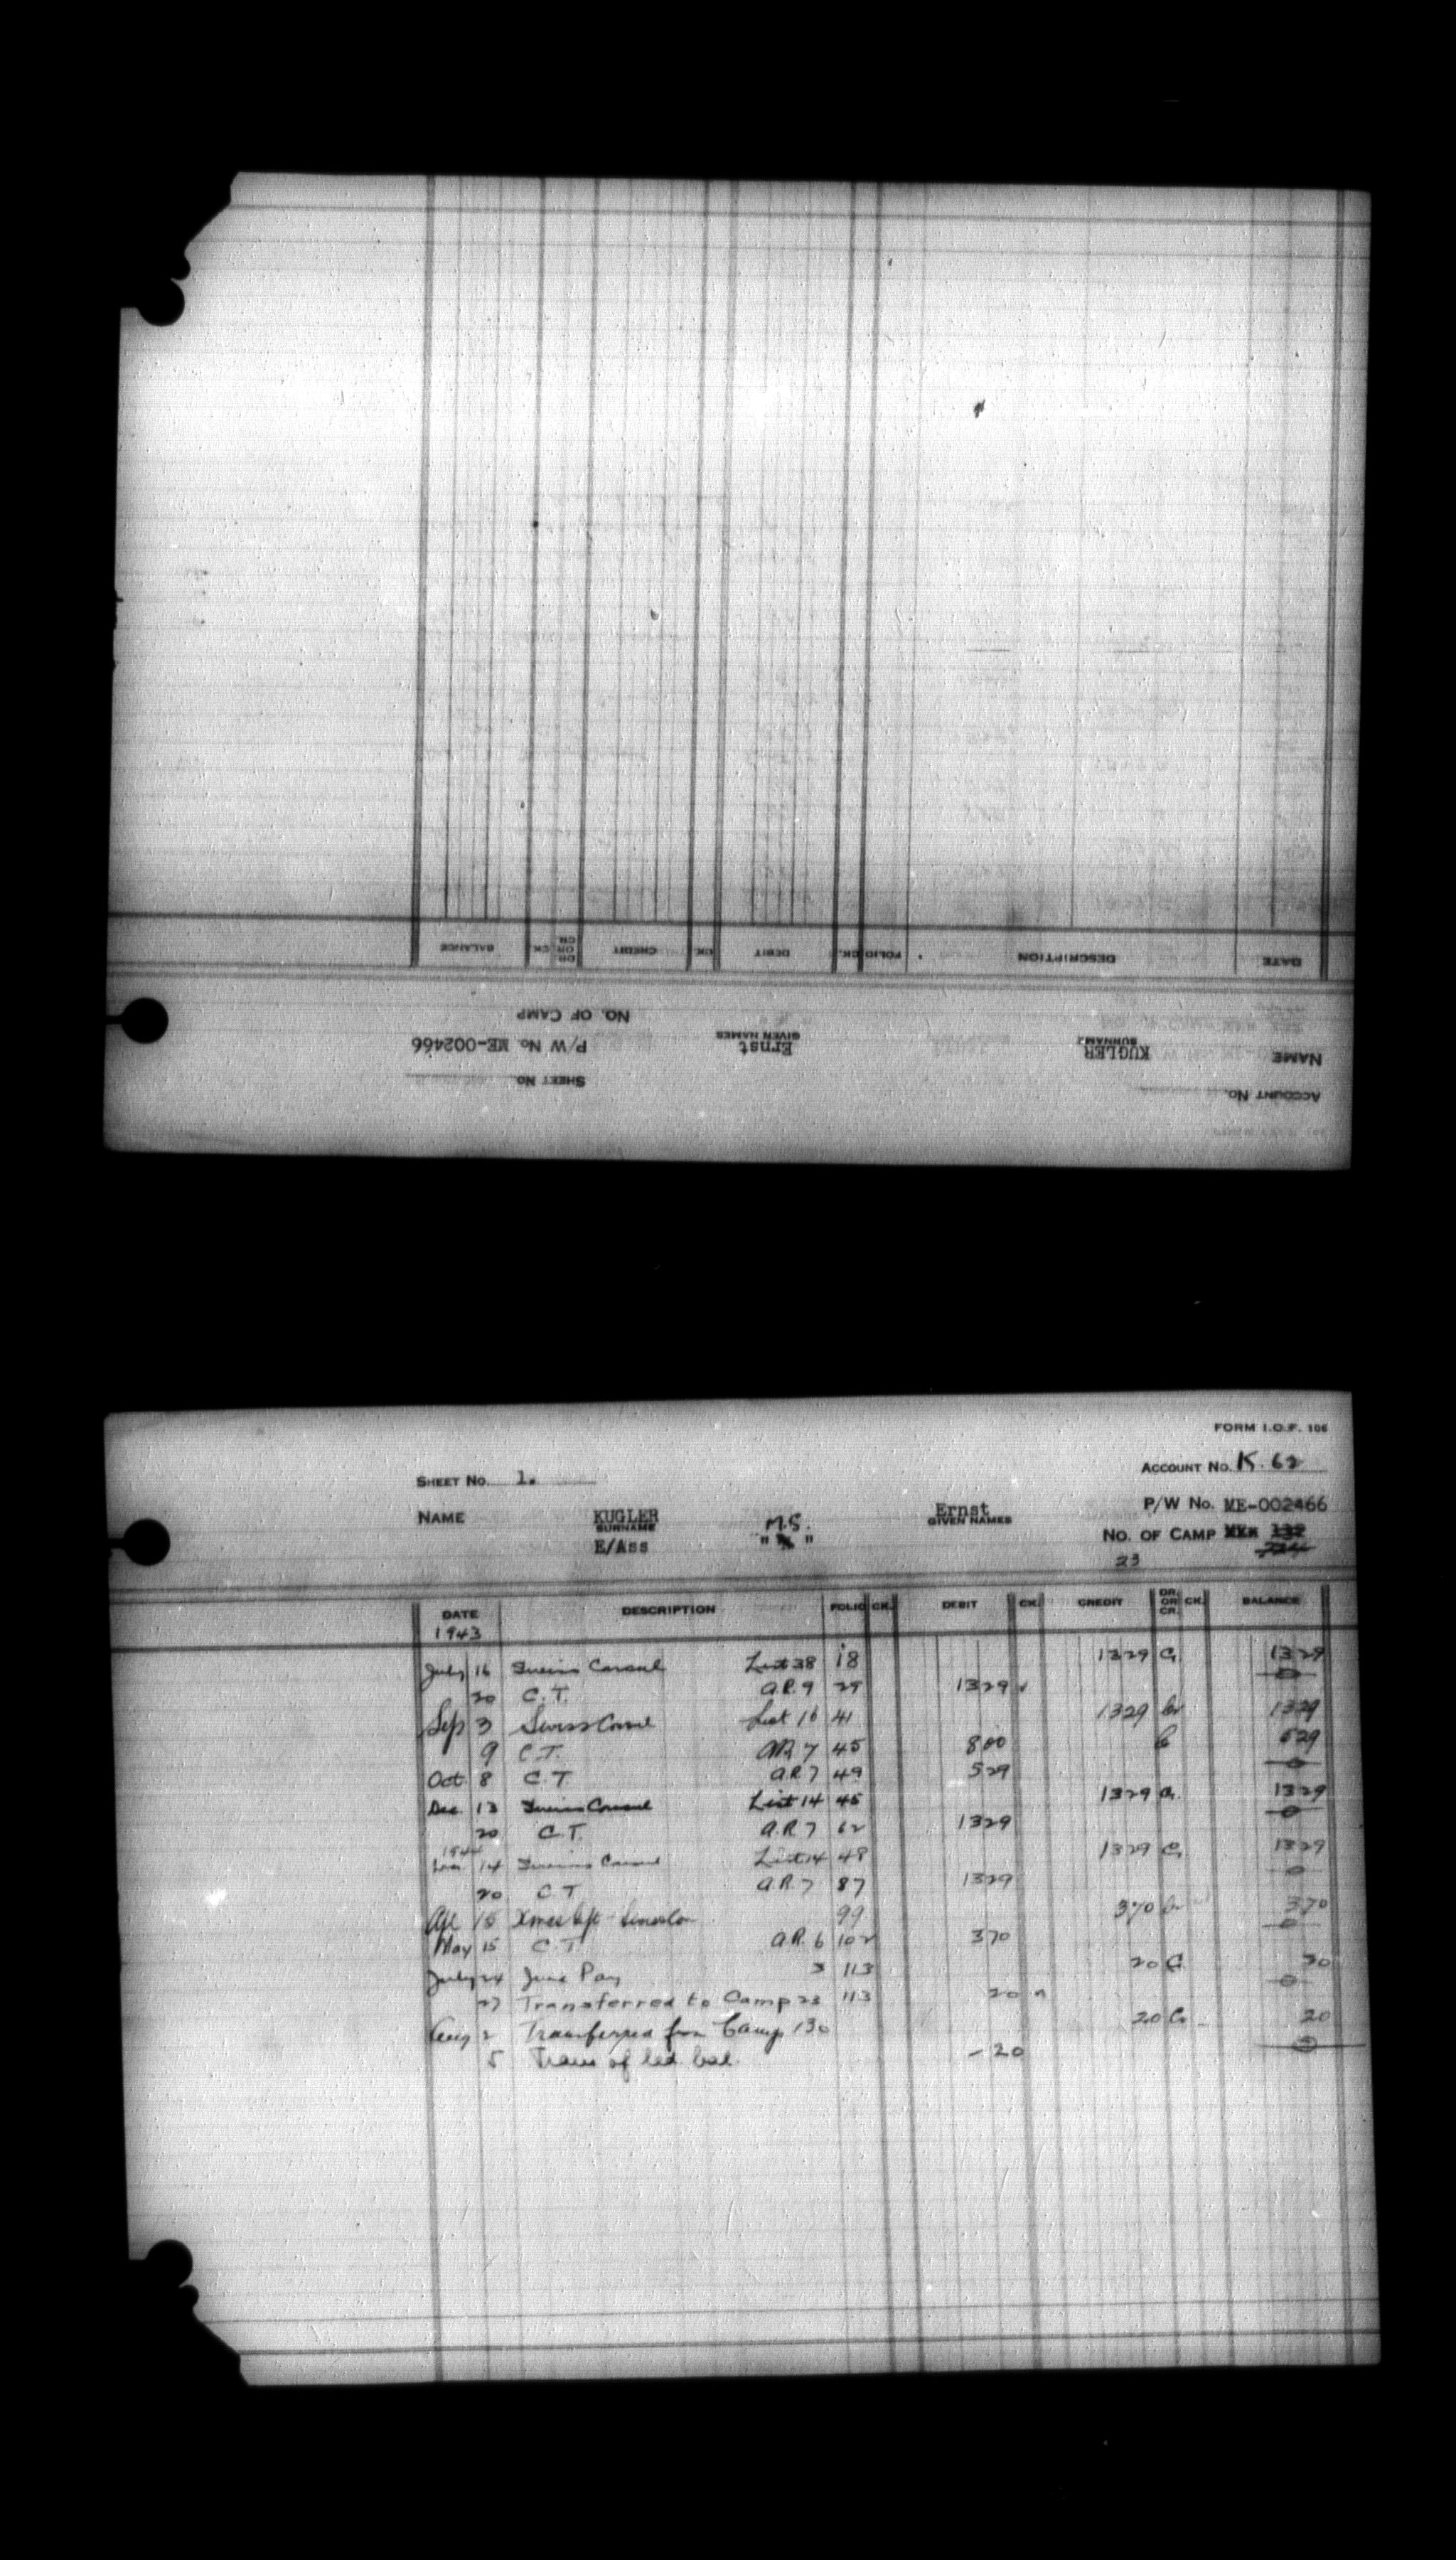 ACCOUNT No.
SHEET No.
NAME KUGLER Ernst P/W No. ME-002466
SURNAME GIVEN NAMES
NO. OF CAMP
DATE DESCRIPTION FOLIO CK. DEBIT CK. CREDIT DR. OR CR. CK. BALANCE
FORM I.O.F. 106
SHEET No. 1. ACCOUNT No. K. 62
NAME KUGLER M.S. Ernst P/W No. ME-002466
SURNAME GIVEN NAMES
E/Ass " " NO. OF CAMP 132
23
DATE DESCRIPTION FOLIO CK. DEBIT CK. CREDIT DR. OR CR. CK. BALANCE
1943
July 16 Swiss Consul List 38 18 1329 Cr 1329
20 C.T. A.R. 9 29 1329 0
Sep 3 Swiss Consul List 16 41 1329 Cr 1329
9 C.T. A.R. 7 45 800 529
Oct 8 C.T. A.R. 7 49 529 0
Dec. 13 Swiss Consul List 14 45 1329 Cr. 1329
20 C.T. A.R. 7 62 1329 0
1944
Jan 14 Swiss Consul List 14 48 1329 Cr 1329
20 C.T A.R. 7 87 1329 0
Apl 15 Xmas 99 370 Cr 370
May 15 C.T. A.R. 6 102 370 0
July 24 June Pay 3 113 20 Cr 20
27 Transferred to Camp 23 113 20 0
Aug 2 Transferred from Camp 130 20 Cr 20
5 Trans of led bal. - 20 0